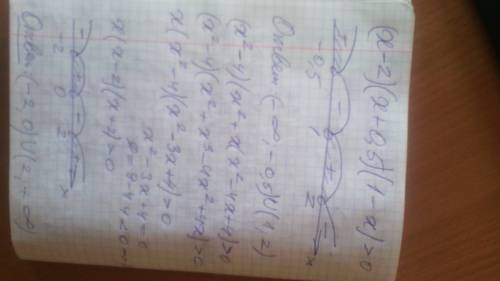 (x-2)(x+0,5)(1-x)>0
+ - + -
-0,5 1 2 x
Ответ: (-∞, -0,5)∪(1,2)
(x²-4)(x²+x
(x²-4)(x²+x³-4x²+4x)>0
x(x²-4)(x²-3x+4)>0
x²-3x+4=0
x(x-2)(x+2)>0
- + - +
-2 0 2 x
Ответ: (-2,0)∪(2,+∞)